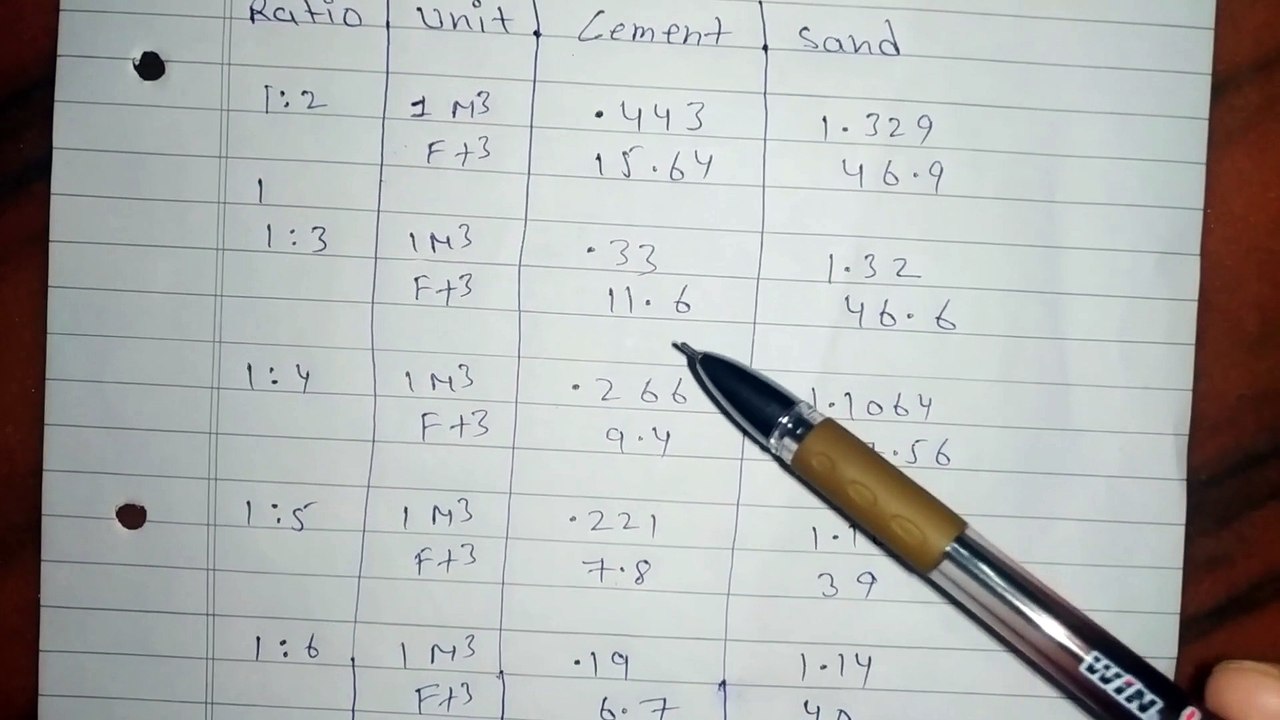 Ratio Unit Cement Sand
1:2 1 M3 .443 1.329
Ft3 15.64 46.9
1
1:3 1 M3 .33 1.32
Ft3 11.6 46.6
1:4 1 M3 .266 1.1064
Ft3 9.4 .56
1:5 1 M3 .221 1.1
Ft3 7.8 39
1:6 1 M3 .19 1.14
Ft3 6.7 40
WIN